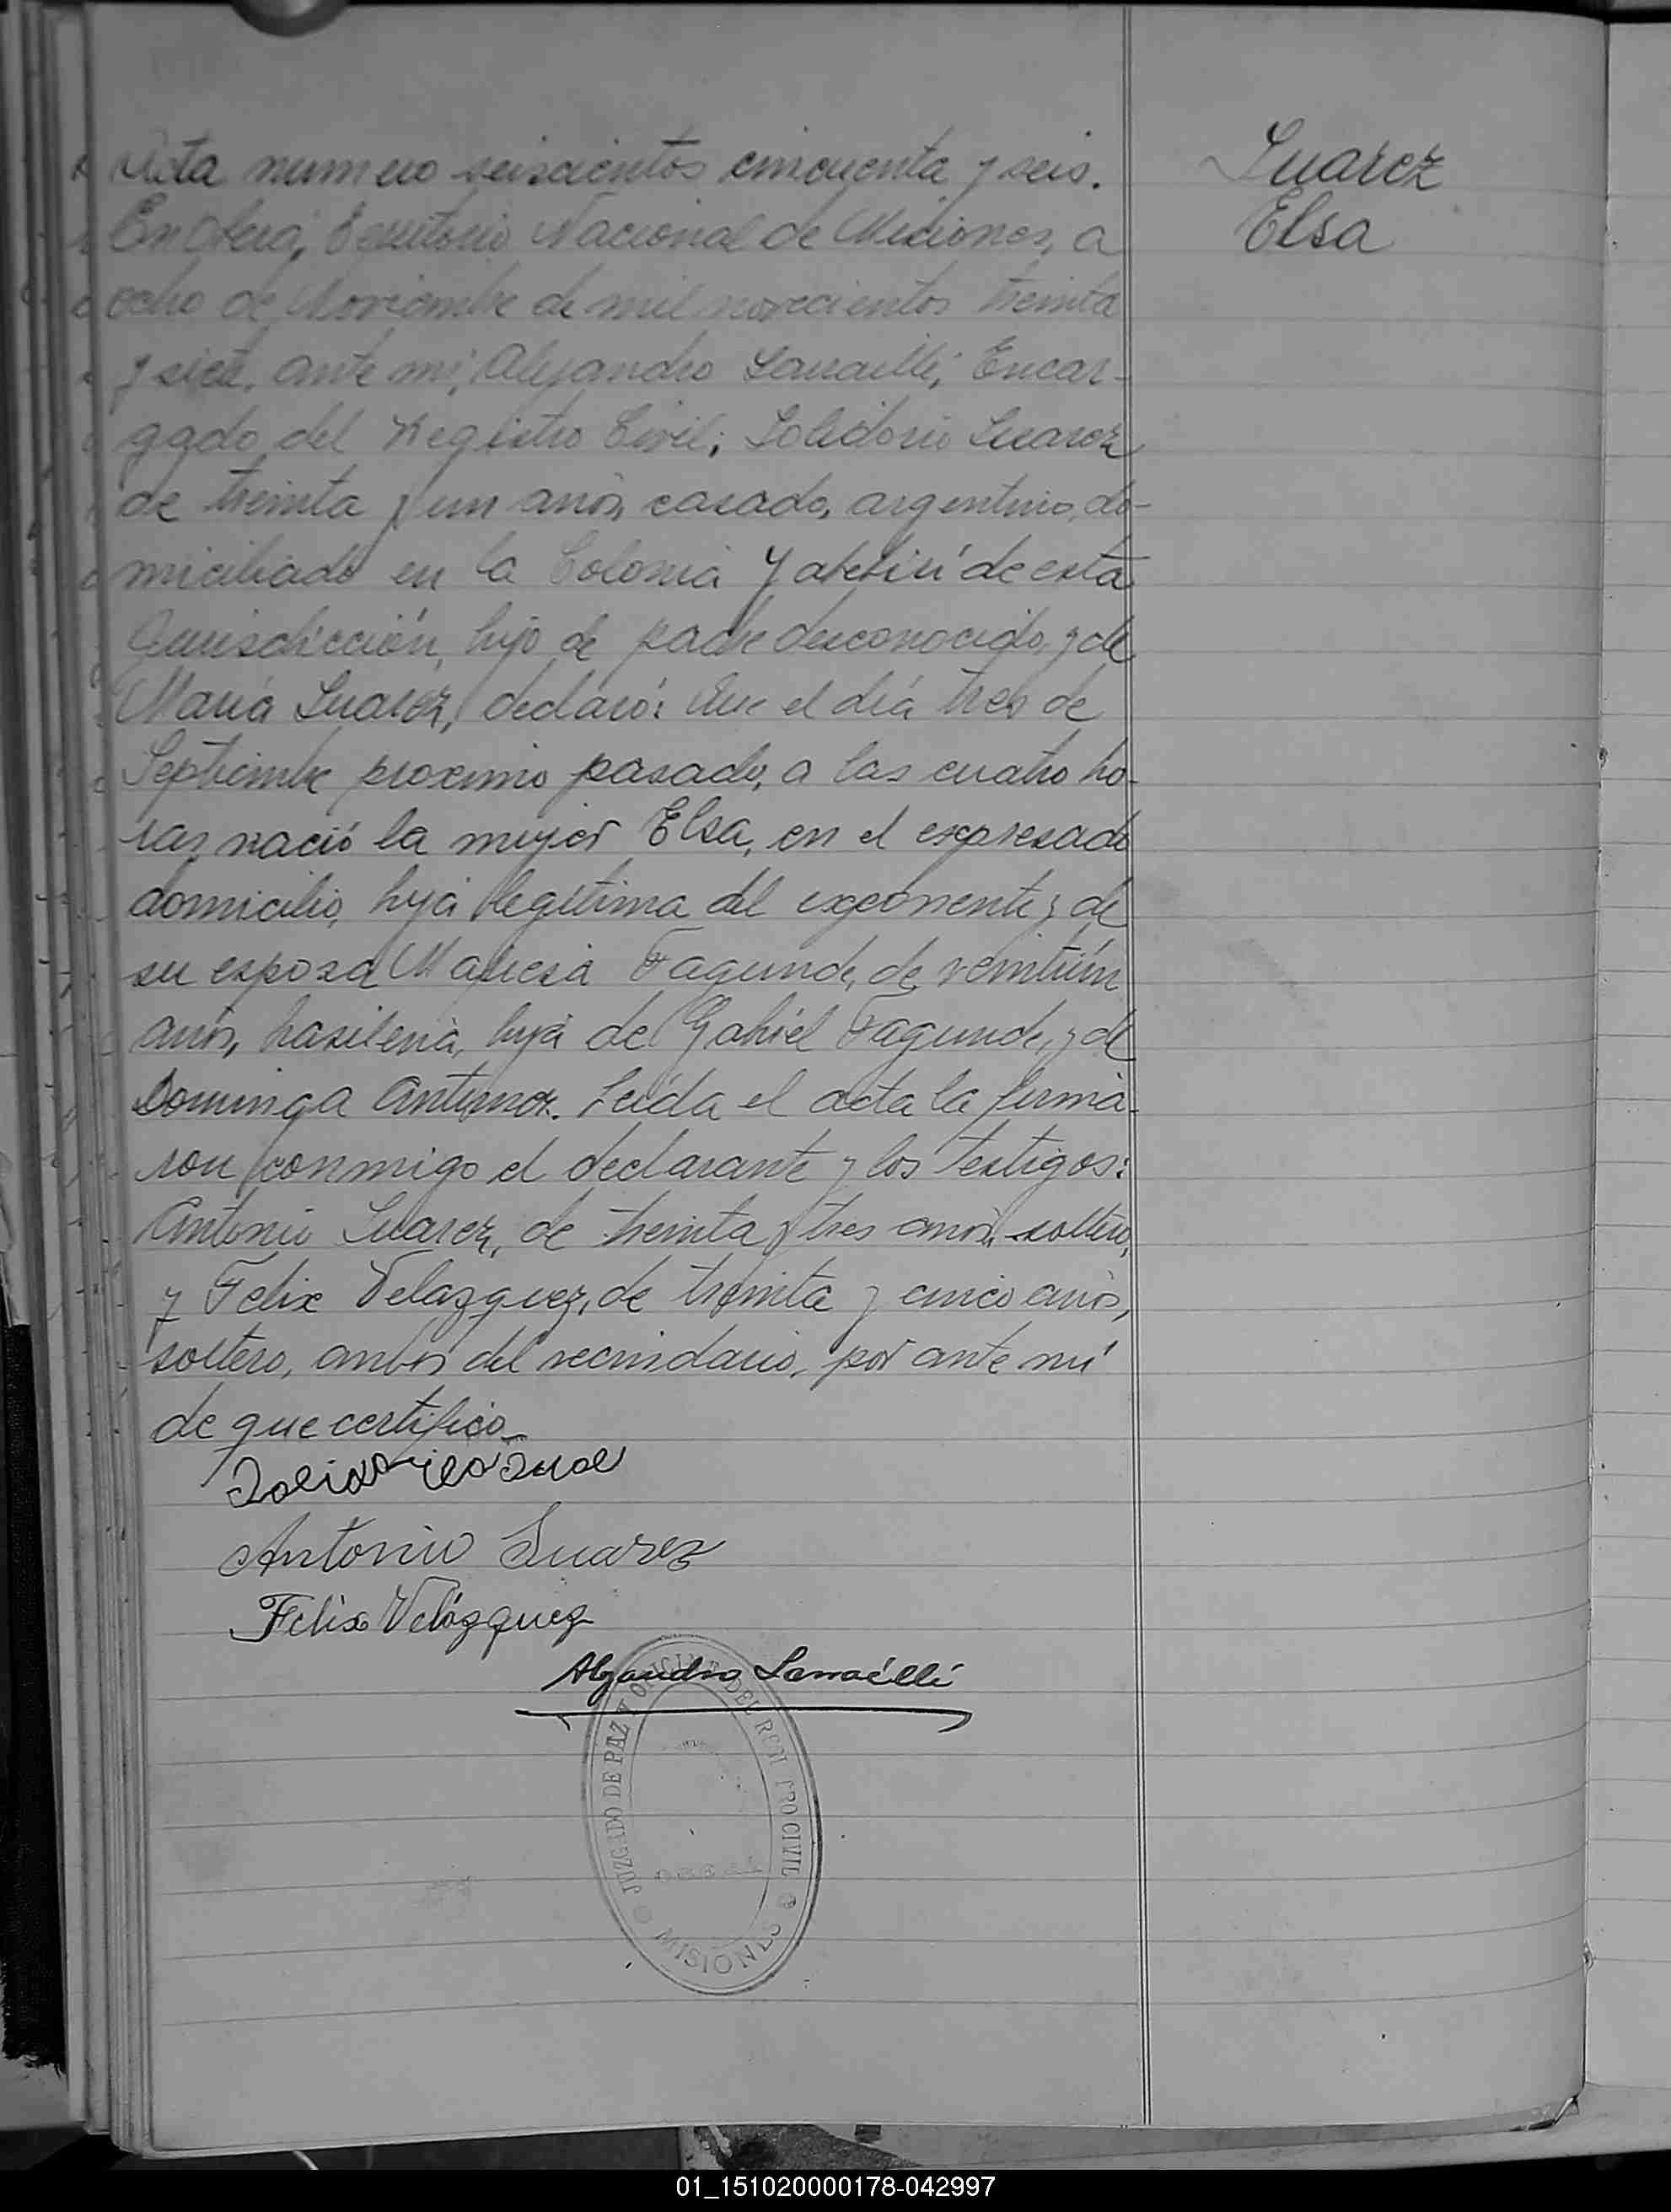 Acta numero seiscientos cincuenta y seis.
En Oberá, Territorio Nacional de Misiones, a
ocho de Noviembre de mil novecientos treinta
y siete, ante mi, Alejandro Larrailli, Encar-
gado del Registro Civil; Solidorio Suarez
de treinta y un anós, casado, argentino, do-
miciliado en la Colonia Yabebirí de esta
Jurisdicción, hijo de padre desconocido, y de
Maria Suarez, declaró: Que el día tres de
Septiembre proximo pasado, a las cuatro ho-
ras, nació la mujer Elsa, en el expresado
domicilio, hija legitima del exponente y de
su esposa Fagunde, de veintiún
anós, brasilena, hija de Gabriel Fagunde, y de
Dominga Antunez. Leída el acta la firma-
ron conmigo el declarante y los testigos:
Antonio Suarez, de treinta y tres anós, soltero,
y Felix Velazquez, de treinta y cinco anós,
soltero, ambos del vecindario, por ante mí
de que certifico_
Antonio Suarez
Felix Velázquez
Alejandro Larrailli
JUZGADO DE PAZ Y OFICINA DEL REGISTRO CIVIL
MISIONES
Suarez
Elsa
01_151020000178-042997